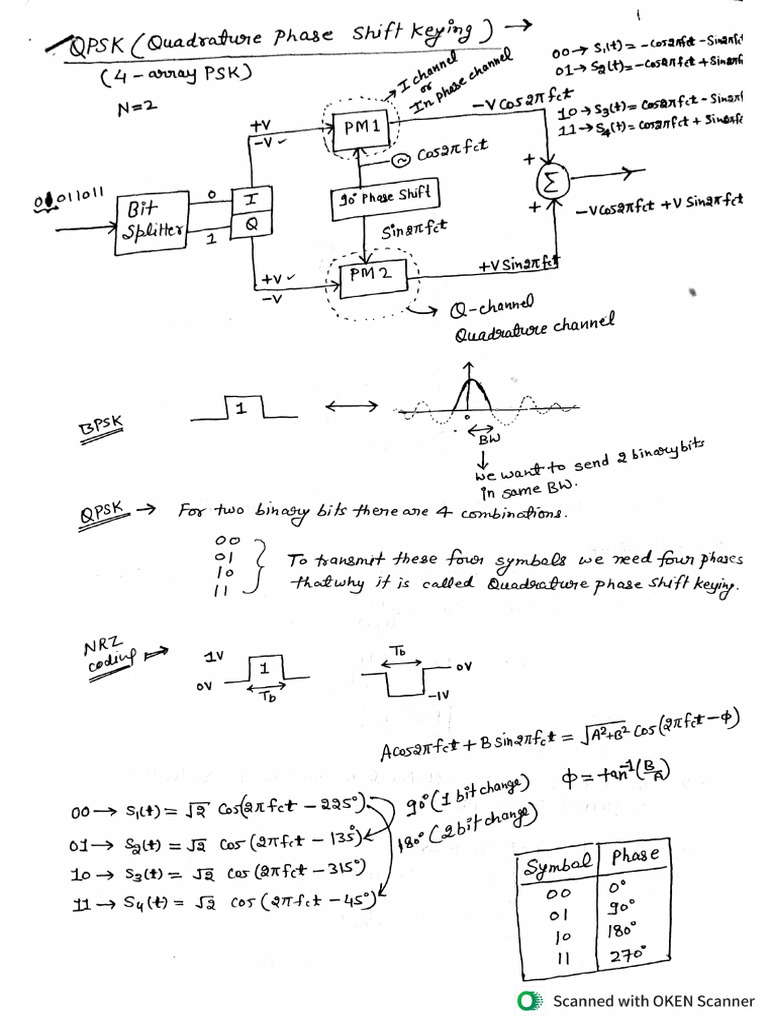 1
QPSK (Quadrature Phase Shift Keying) →
(4-array PSK)
N=2
00 → S1(t) = -Cos2πfct - Sin2πfct
01 → S2(t) = -Cos2πfct + Sin2πf
10 → S3(t) = Cos2πfct - Sin2πf
11 → S4(t) = Cos2πfct + Sin2πfc
I channel
or
In phase channel
+V
-V ✓
PM1
-V Cos2πfct
Cos2πfct
011011
Bit
Splitter
0
1
I
Q
90° Phase Shift
Sin2πfct
+
+
Σ
-VCos2πfct + V Sin2πfct
+V ✓
-V
PM2
+V Sin2πfct
Q-channel
Quadrature channel
BPSK
1
0
BW
We want to send 2 binary bits
in same BW.
QPSK → For two binary bits there are 4 combinations.
00
01
10
11
To transmit these four symbols we need four phases
that why it is called Quadrature phase Shift Keying.
NRZ
coding
1V
0V
1
Tb
Tb
0V
-1V
ACos2πfct + B Sin2πfct = √A²+B² Cos(2πfct-Φ)
Φ = tan⁻¹(B/A)
00 → S1(t) = √2 Cos(2πfct - 225°)
01 → S2(t) = √2 Cos(2πfct - 135°)
10 → S3(t) = √2 Cos(2πfct - 315°)
11 → S4(t) = √2 Cos(2πfct - 45°)
90° (1 bit change)
180° (2 bit change)
Symbol Phase
00 0°
01 90°
10 180°
11 270°
Scanned with OKEN Scanner